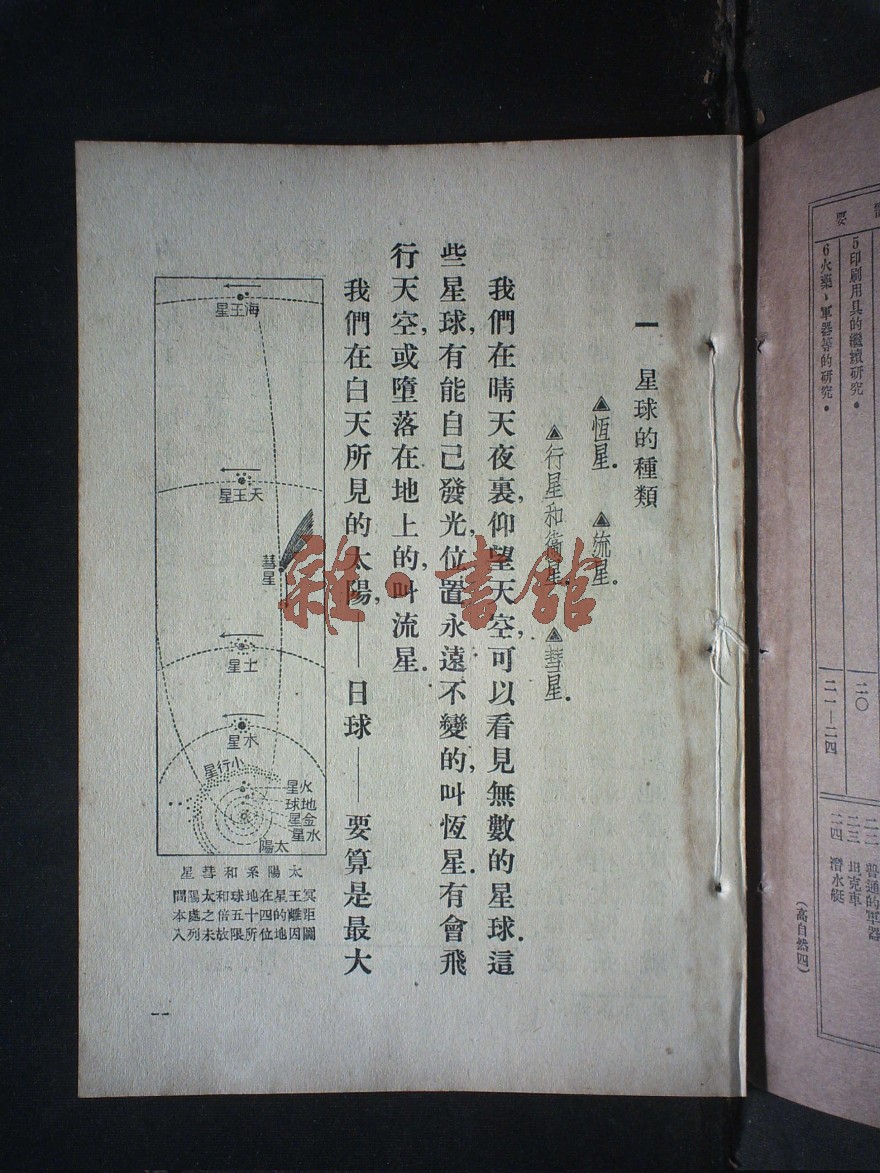 要
5 印刷用具的繼續研究。
6 火藥、軍器等的研究。
二〇
二一—二四
二二 普通的軍器
二三 坦克車
二四 潛水艇
(高自然四)
一 星球的種類
▲恆星。 ▲流星。
▲行星和衞星。 ▲彗星。
我們在晴天夜裏,仰望天空,可以看見無數的星球。這
些星球,有能自己發光,位置永遠不變的,叫恆星。有會飛
行天空,或墮落在地上的,叫流星。
我們在白天所見的太陽,——日球——要算是最大
海王星
天王星
彗星
土星
木星
小行星
火星
地球
金星
水星
太陽
太陽系和彗星
冥王星在地球和太陽間
距離的四十五倍之處本
圖因地位所限故未列入
一
雜·書館